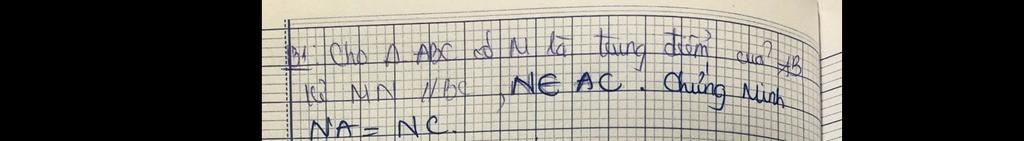 B1: Cho Δ ABC có M là trung điểm của AB
Kẻ MN // BC, N ∈ AC. Chứng Minh
NA = NC.